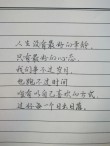 人生没有最好的年龄
只有最好的心态
我们争不过岁月
也跑不过时间
唯有以自己喜欢的方式
过好每一个日出日落